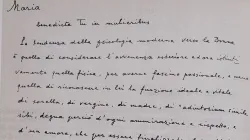 Maria
Benedicta Tu in mulieribus
La tendenza della psicologia moderna verso la Donna
è quella di considerare l'avvenenza esteriore e doni
vamente quella fisica, per avere fascino passionale, e meno
quella di riconoscere in lei la funzione ideale e vitale
di sorella, di vergine, di madre, di "adiutorium simile
degna perciò d'ogni ammirazione e rispetto,
d'un amore, che per essere